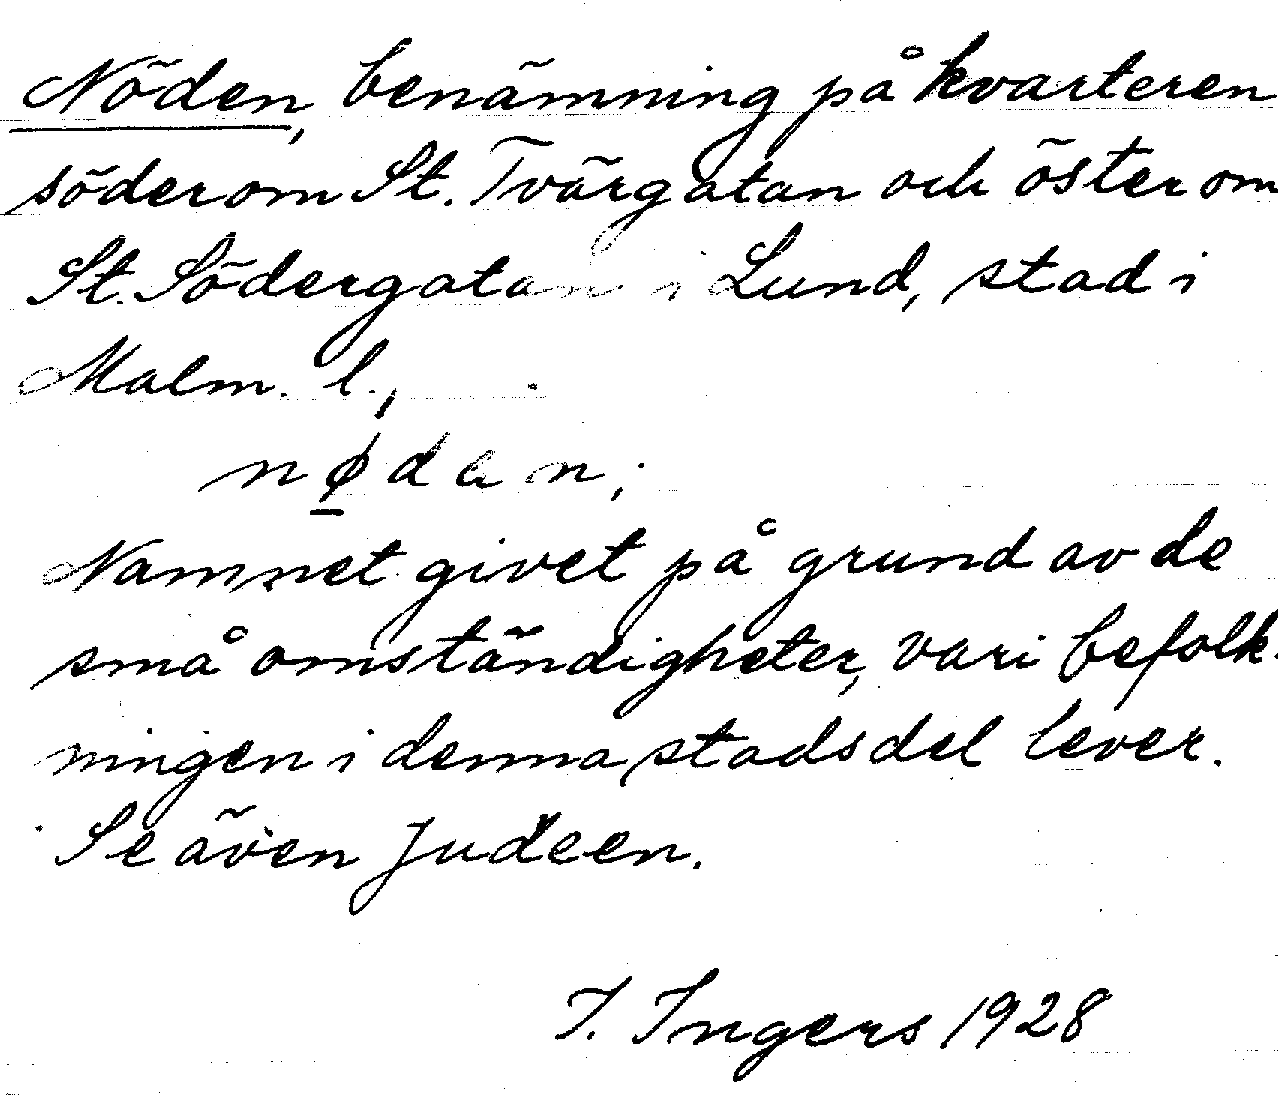 Nöden, benämning på kvarteren
söder om St. Tvärgatan och öster om
St. Södergatan i Lund, stad i
Malm. l.,
nødan;
Namnet givet på grund av de
små omständigheter, vari befolk-
ningen i denna stadsdel lever.
Se även Judeen.
I. Ingers 1928